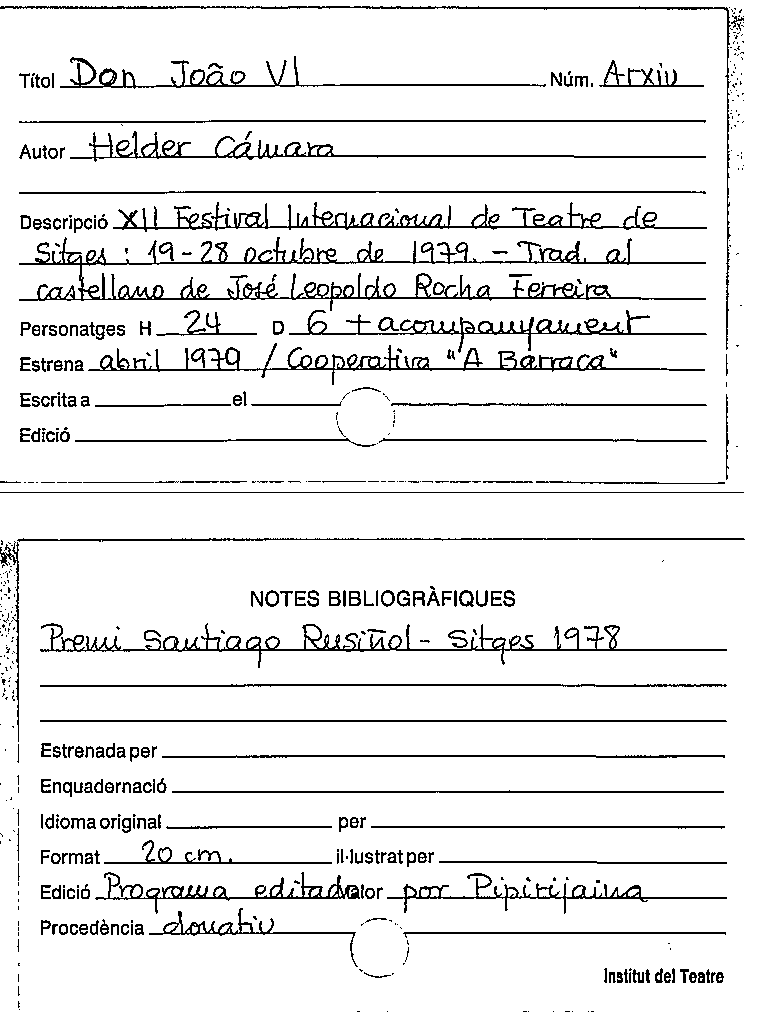 Títol Don João VI Núm. Arxiu
Autor Helder Cámara
Descripció XII Festival Internacional de Teatre de
Sitges : 19-28 octubre de 1979. - Trad. al
castellano de José Leopoldo Rocha Ferreira
Personatges H 24 D 6 + acompanyament
Estrena abril 1979 / Cooperativa "A Barraca"
Escrita a el
Edició
NOTES BIBLIOGRÀFIQUES
Premi Santiago Rusiñol - Sitges 1978
Estrenada per
Enquadernació
Idioma original per
Format 20 cm. il·lustrat per
Edició Programa editado por Pipirijaina
Procedència donatiu
Institut del Teatre